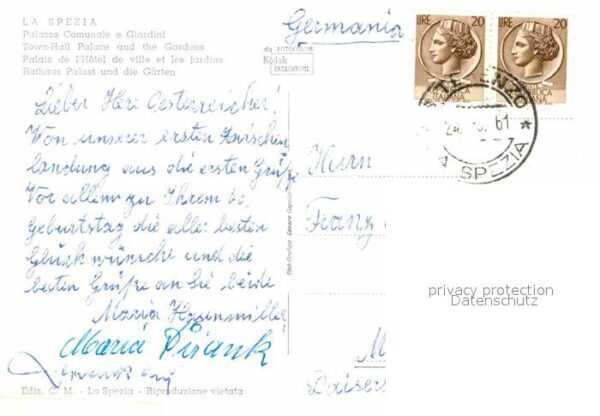 LA SPEZIA
Palazzo Comunale e Giardini
Town-Hall Palace and the Gardens
Palais de l'Hôtel de ville et les jardins
Rathaus Palast und die Gärten
Germania
da FOTOCOLOR
Kodak
EKTACHROME
LIRE 20
LIRE 20
ITALIANA
61
A SPEZIA
Lieber Herr Oesterreicher!
Von unserer ersten Zwischen
landung aus die ersten Grüße
Vor allem zu Ihrem 60.
Geburtstag die aller besten
Glück wünsche und die
besten Grüße an Sie beide
Maria Hagenmiller
Maria
Herrn
Franz
privacy protection
Datenschutz
Ediz. C. M. - La Spezia - Riproduzione vietata